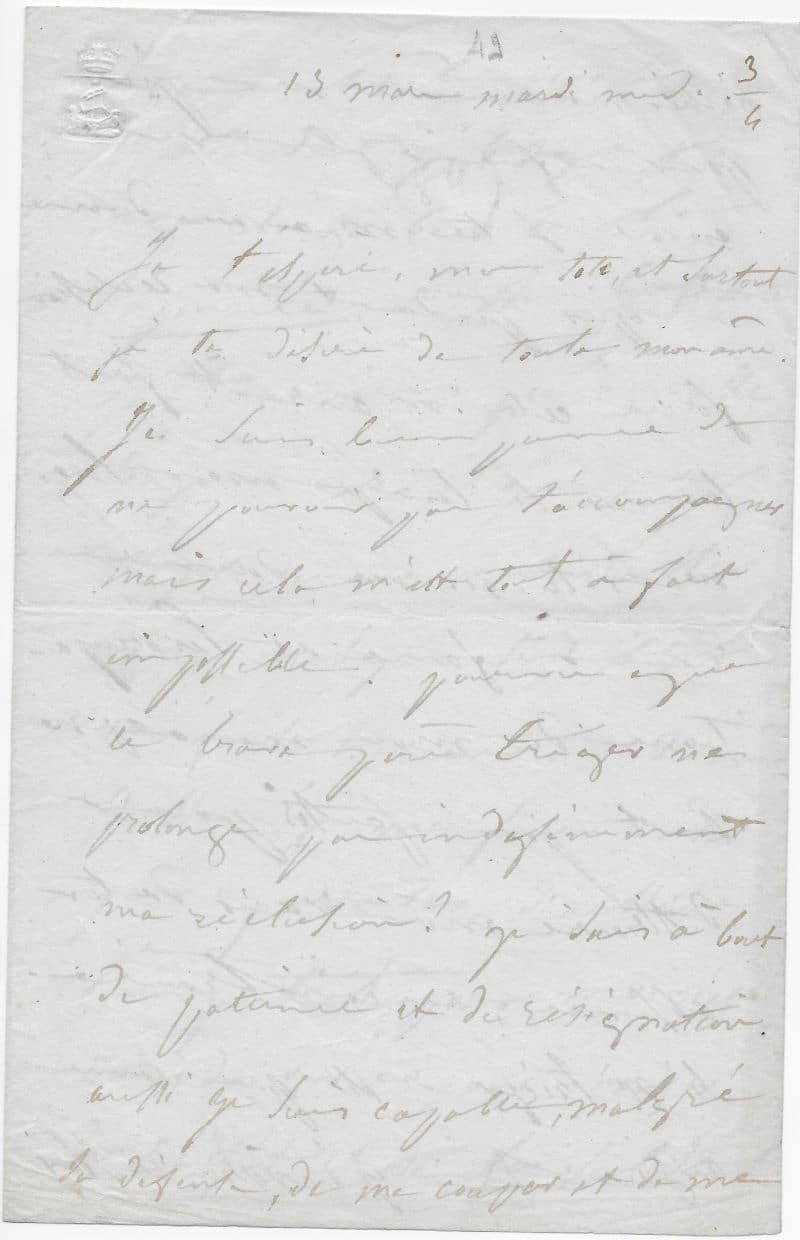 42
13 mars mardi midi 3/4
Je t'espère, mon toto, et surtout
je te désire de toute mon âme.
Je suis bien
ne pouvoir pas t'accompagner
mais cela m'est tout à fait
impossible. pourvu que
le brave père triger ne
prolonge pas indéfiniment
ma réclusion? je suis à bout
de patience et de résignation
aussi je suis capable, malgré
sa défense, de me couper et de me